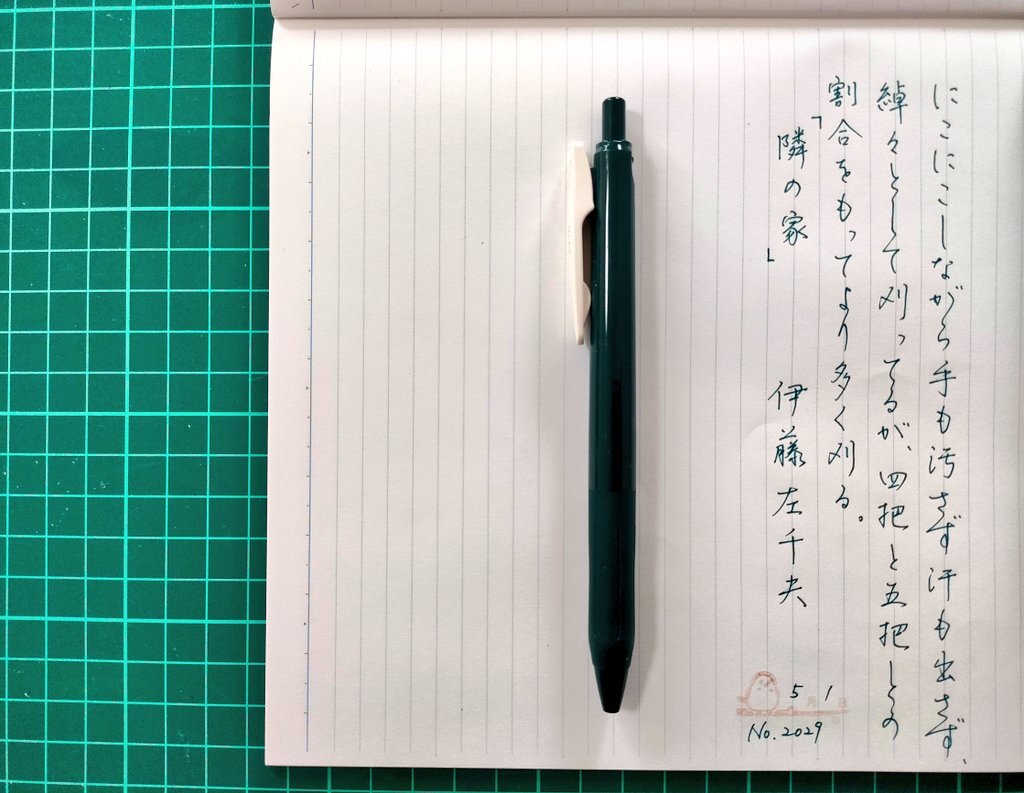 にこにこしながら手も汚さず汗も出さず、
綽々として刈ってるが、四把と五把との
割合をもってより多く刈る。
「隣の家」 伊藤左千夫
5月1日
No.2029